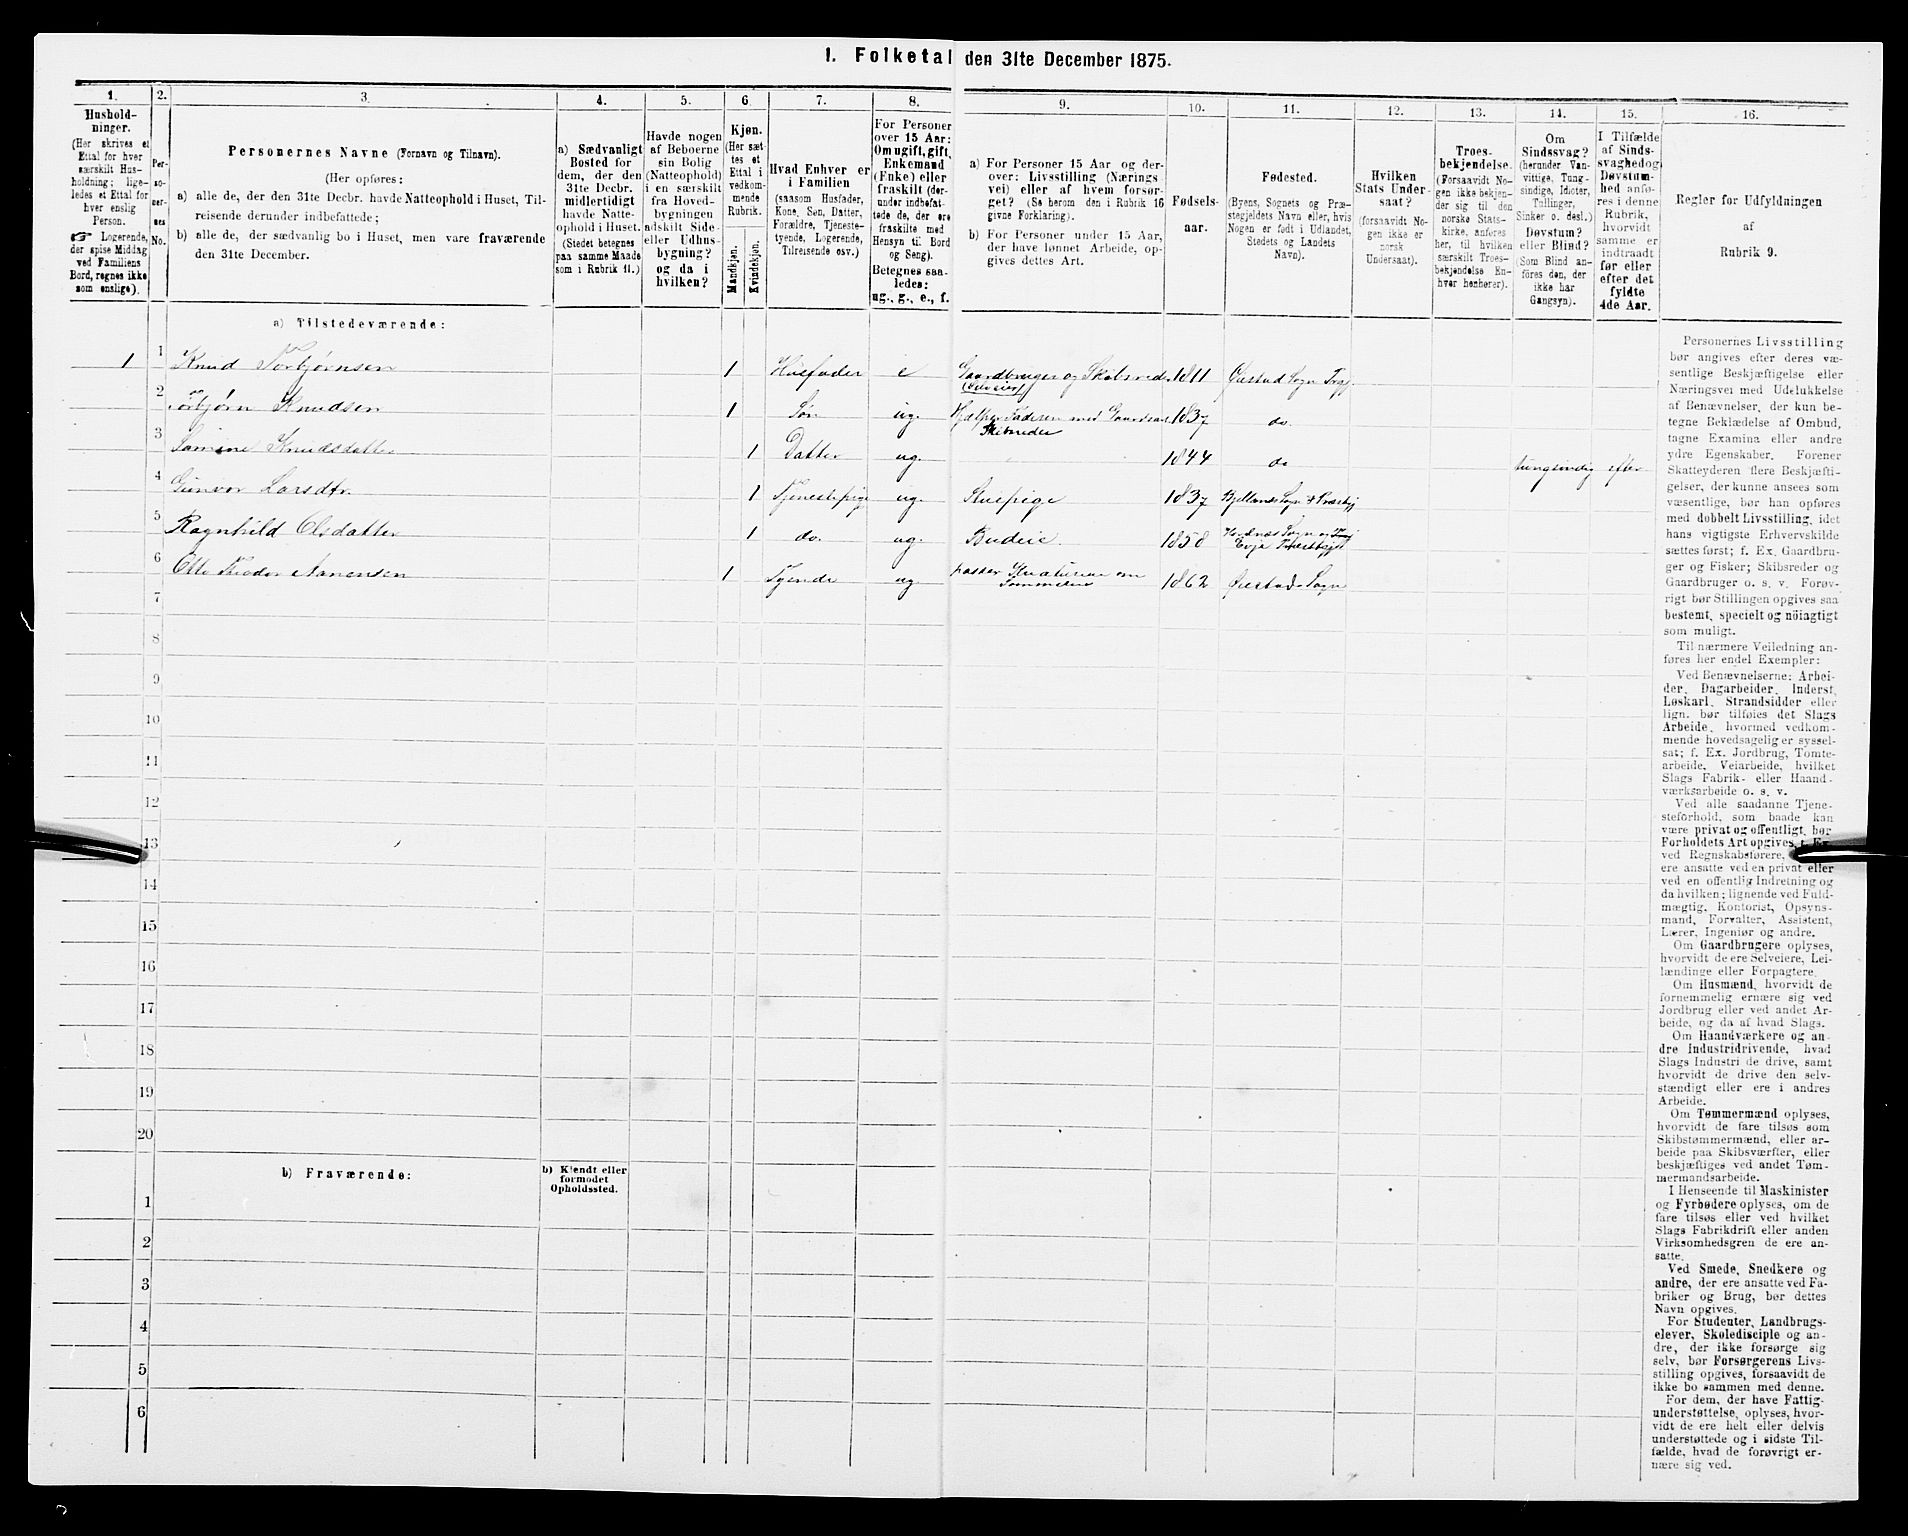 1. Folketal den 31te December 1875.
1.
Hushold-
ninger.
(Her skrives et
Ettal for hver
særskilt Hus-
holdning; lige-
ledes et Ettal for
hver enslig
Person.
☞ Logerende,
der spise Middag
ved Familiens
Bord, regnes ikke
som enslige).
2.
Per-
so-
ner-
nes
No.
3.
Personernes Navne (Fornavn og Tilnavn).
(Her opføres:
a) alle de, der den 31te Decbr. havde Natteophold i Huset, Til-
reisende derunder indbefattede;
b) alle de, der sædvanlig bo i Huset, men vare fraværende
den 31te December.
4.
a) Sædvanligt
Bosted for
dem, der den
31te Decbr.
midlertidigt
havde Natte-
ophold i Huset.
(Stedet betegnes
paa samme Maade
som i Rubrik 11.)
5.
Havde nogen
af Beboerne
sin Bolig
(Natteophold)
i en særskilt
fra Hoved-
bygningen
adskilt Side-
eller Udhus-
bygning?
og da i
hvilken?
6.
Kjøn.
(Her sæt-
tes et
Ettal i
vedkom-
mende
Rubrik.
Mandkjøn.
Kvindekjøn.
7.
Hvad Enhver er
i Familien
(saasom Husfader,
Kone, Søn, Datter,
Forældre, Tjeneste-
tyende, Logerende,
Tilreisende osv.)
8.
For Personer
over 15 Aar:
Om ugift, gift,
Enkemand
(Enke) eller
fraskilt (der-
under indbefat-
tede de, der ere
fraskilte med
Hensyn til Bord
og Seng).
Betegnes saa-
ledes:
ug., g., e., f.
9.
a) For Personer 15 Aar og der-
over: Livsstilling (Nærings
vei) eller af hvem forsør-
get? (Se herom den i Rubrik 16
givne Forklaring).
b) For Personer under 15 Aar,
der have lønnet Arbeide, op-
gives dettes Art.
10.
Fødsels-
aar.
11.
Fødested.
(Byens, Sognets og Præ-
stegjeldets Navn eller, hvis
Nogen er født i Udlandet,
Stedets og Landets
Navn).
12.
Hvilken
Stats Under-
saat?
(forsaavidt No-
gen ikke er
norsk
Undersaat).
13.
Troes-
bekjendelse.
(Forsaavidt No-
gen ikke bekjen-
der sig til den
norske Stats-
kirke, anføres
her, til hvilken
særskilt Troes-
bekjendelse En-
hver henhører).
14.
Om
Sindssvag?
(herunder Van-
vittige, Tung-
sindige, Idioter,
Tullinger,
Sinker o. desl.)
Døvstum?
eller Blind?
(Som Blind an-
føres den, der
ikke har
Gangsyn).
15.
I Tilfælde
af Sinds-
svaghed og
Døvstum-
hed anfø-
res i denne
Rubrik,
hvorvidt
samme er
indtraadt
før eller
efter det
fyldte
4de Aar.
16.
Regler for Udfyldningen
af
Rubrik 9.
a) Tilstedeværende:
1 1 Knud Torbjørnsen 1 Husfader e Gaardbruger og Skibsreder 1811 Øiestad Sogn
2 Torbjørn Knudsen 1 Søn ug. 1837 do
Skibsreder
3 Knudsdatter 1 Datter ug. 1844 do tungsindig efter
4 Gunvor Larsdtr 1 Tjenestepige ug. Stuepige 1837
5 Ragnhild Olsdatter 1 do. ug. Budeie 1858
6 Otto Theodor Aanensen 1 Tyende ug passer Kreaturene om
Sommeren 1862 Øiestad Sogn
7
8
9
10
11
12
13
14
15
16
17
18
19
20
b) Fraværende:
b) Kjendt eller
formodet
Opholdssted.
1
2
3
4
5
6
Personernes Livsstilling
bør angives efter deres væ-
sentlige Beskjæftigelse eller
Næringsvei med Udelukkelse
af Benævnelser, der kun be-
tegne Beklædelse af Ombud,
tagne Examina eller andre
ydre Egenskaber. Forener
Skatteyderen flere Beskjæfti-
gelser, der kunne ansees som
væsentlige, bør han opføres
med dobbelt Livsstilling, idet
hans vigtigste Erhvervskilde
sættes først; f. Ex. Gaardbru-
ger og Fisker; Skibsreder og
Gaardbruger o. s. v. Forøv-
rigt bør Stillingen opgives saa
bestemt, specielt og nöiagtigt
som muligt.
Til nærmere Veiledning an-
føres her endel Exempler:
Ved Benævnelserne: Arbei-
der, Dagarbeider, Inderst,
Løskarl, Strandsidder eller
lign. bør tilføies det Slags
Arbeide, hvormed vedkom-
mende hovedsagelig er syssel-
sat; f. Ex. Jordbrug, Tomte-
arbeide, Veiarbeide, hvilket
Slags Fabrik- eller Haand-
værksarbeide o. s. v.
Ved alle saadanne Tjene-
steforhold, som baade kan
være privat og offentligt, bør
Forholdets Art opgives, f. Ex.
ved Regnskabsførere,
ere ansatte ved en privat eller
ved en offentlig Indretning og
da hvilken; lignende ved Fuld-
mægtig, Kontorist, Opsyns-
mand, Forvalter, Assistent,
Lærer, Ingeniør og andre.
Om Gaardbrugere oplyses,
hvorvidt de ere Selveiere, Lei-
lændinge eller Forpagtere.
Om Husmænd, hvorvidt de
fornemmelig ernære sig ved
Jordbrug eller ved andet Ar-
beide, og da af hvad Slags.
Om Haandværkere og an-
dre Industridrivende, hvad
Slags Industri de drive, samt
hvorvidt de drive den selv-
stændigt eller ere i andres
Arbeide.
Om Tømmermænd oplyses,
hvorvidt de fare tilsøs som
Skibstømmermænd, eller ar-
beide paa Skibsværfter, eller
beskjæftiges ved andet Tøm-
mermandsarbeide.
I Henseende til Maskinister
og Fyrbødere oplyses, om de
fare tilsøs eller ved hvilket
Slags Fabrikdrift eller anden
Virksomhedsgren de ere an-
satte.
Ved Smede, Snedkere og
andre, der ere ansatte ved Fa-
briker og Brug, bør dettes
Navn opgives.
For Studenter, Landbrugs-
elever, Skoledisciple og an-
dre, der ikke forsørge sig
selv, bør Forsørgerens Livs-
stilling opgives, forsaavidt de
ikke bo sammen med denne.
For dem, der have Fattig-
understøttelse, oplyses, hvor-
vidt de ere helt eller delvis
understøttede og i sidste Til-
fælde, hvad de forøvrigt er-
nære sig ved.